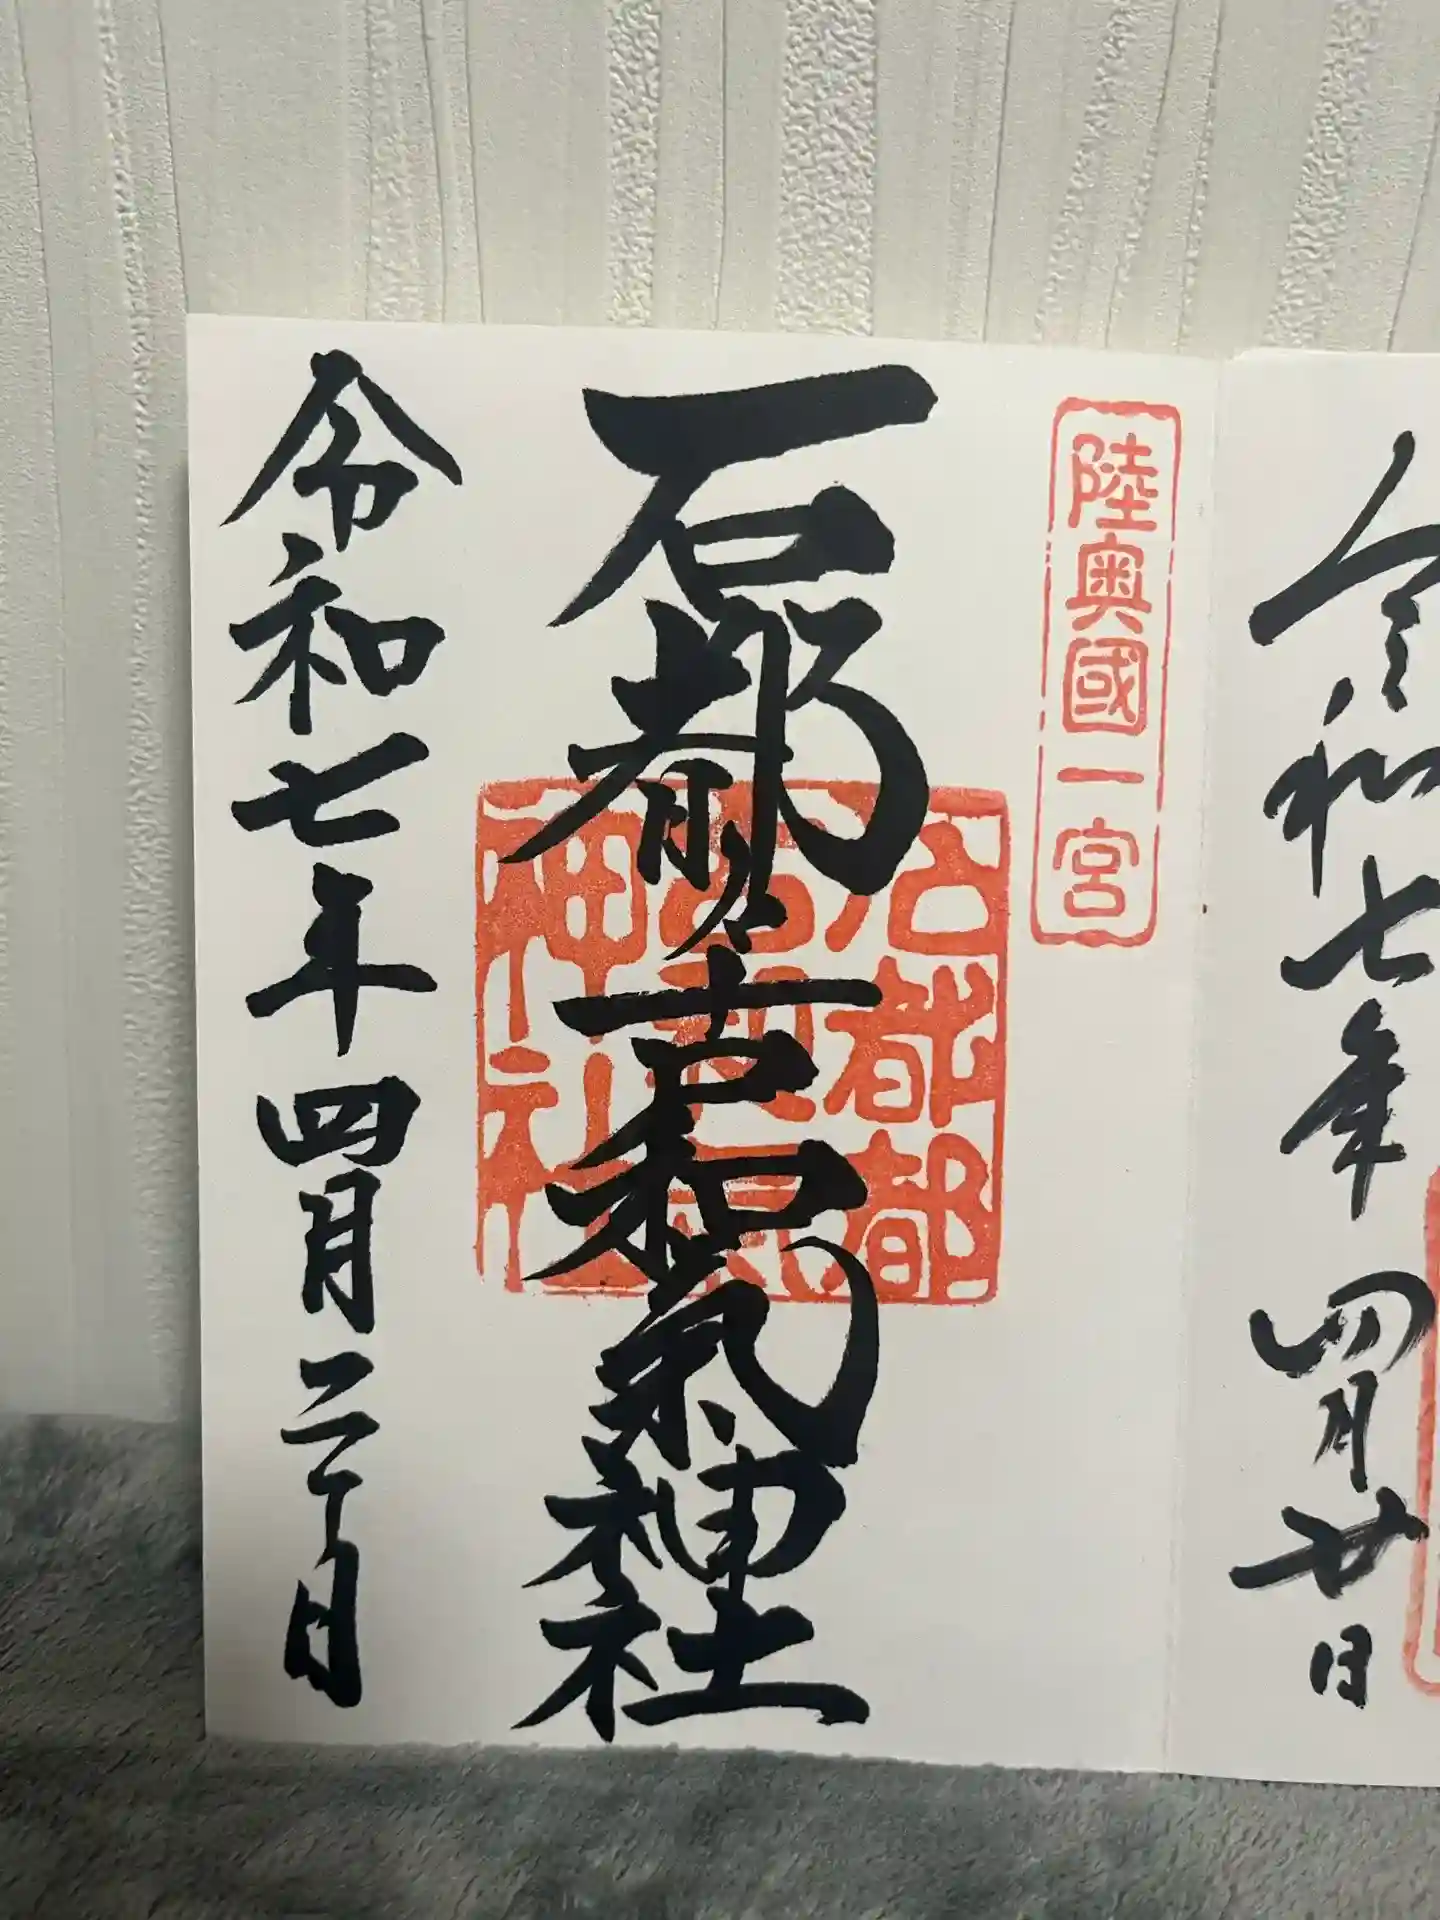 令和七年四月廿日
陸奥國一宮
石都々古和氣神社
石都都
古和気
神社
令和七年四月二十日